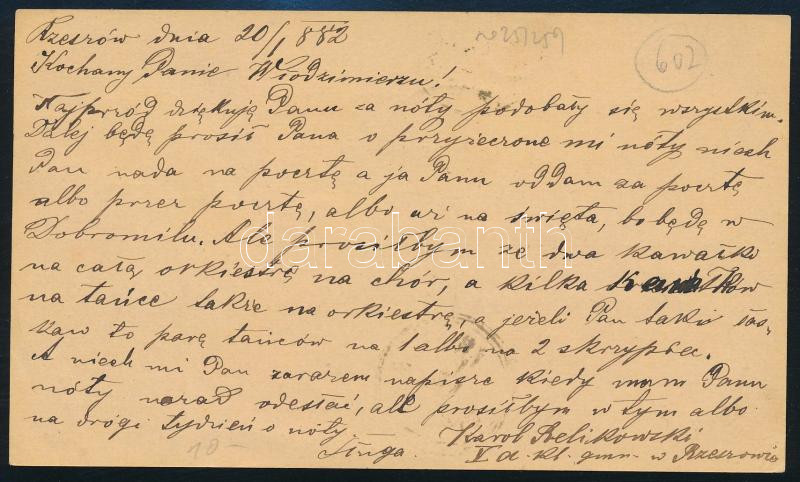 Rzeszów dnia 20/1 882
602
Kochany Panie Włodzimierzu!
Najprzód dziękuję Panu za nóty podobały się wszystkim.
Dalej będę prosił Pana o przyżeczone mi nóty niech
Pan nada na pocztę a ja Panu oddam za pocztę
albo przez pocztę, albo aż na święta, bo będę w
Dobromilu. Ale prosiłbym ze dwa kawałki
na całą orkiestrę na chór, a kilka kawałków
na tańce także na orkiestrę, a jeżeli Pan taki łas-
kaw to parę tańców na 1 albo na 2 skrzypiec.
A niech mi Pan zarazem napisze kiedy mam Panu
nóty nazad odesłać, ale prosiłbym w tym albo
na drógi tydzień o nóty.
Sługa Karol Belikowski
V a. kl. gimn. w Rzeszowie
10-
darabanth